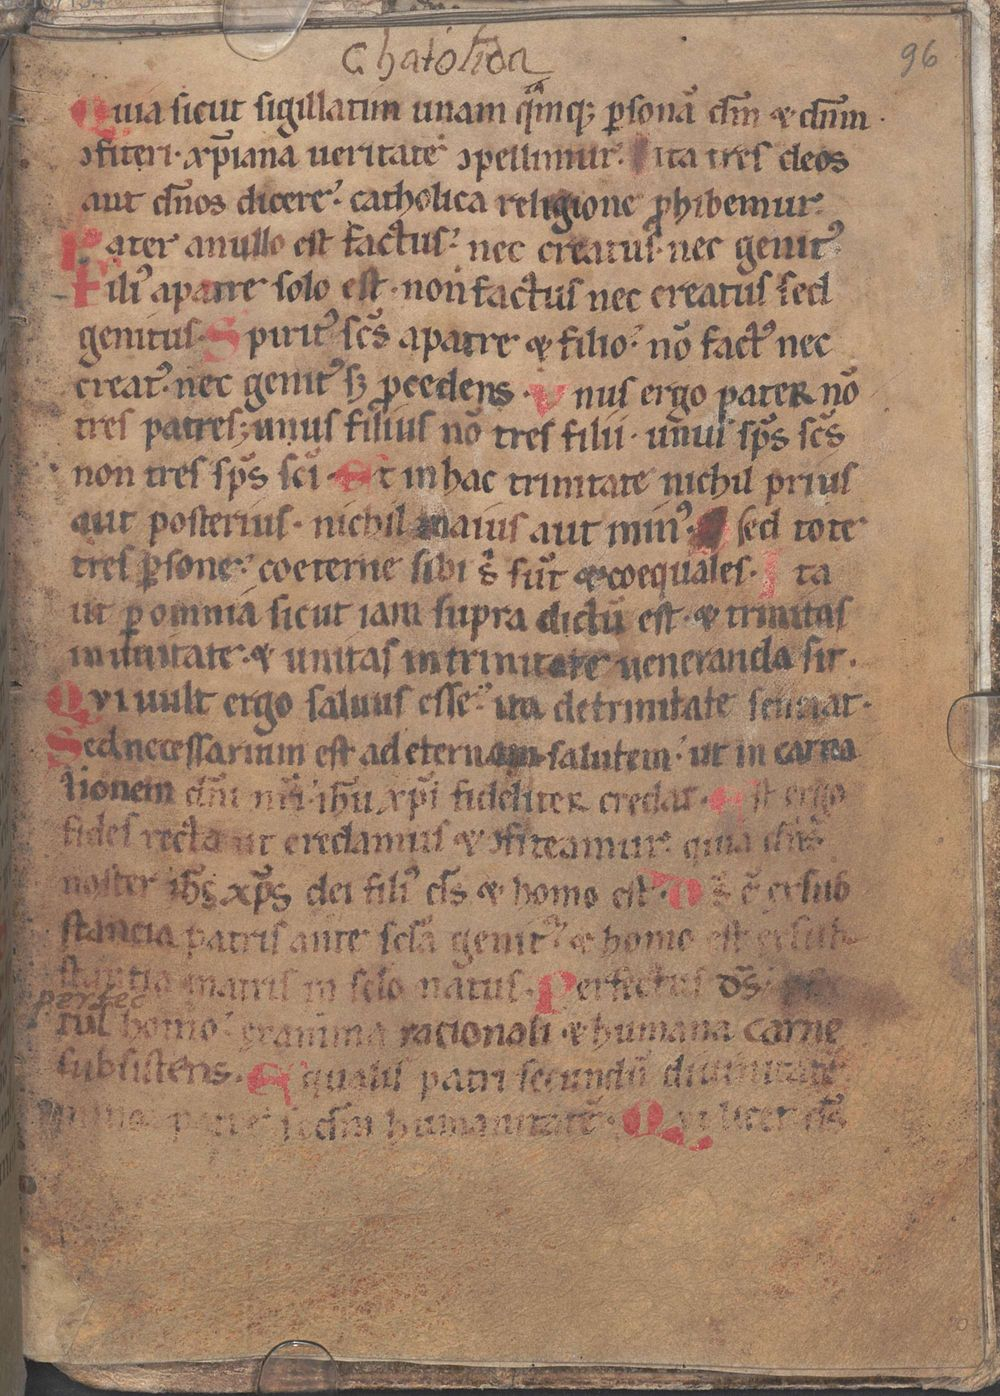 Chatolica
96
Quia sicut sigillatim unam q̃mq; ꝑsonã dm̃ & dñm
ↄfiteri· xp̃iana ueritate ↄpellimur. ita tres deos
aut dños dicere· catholica religione ꝓhibemur.
Pater anullo est factus· nec creatus· nec genitꝰ
Filiꝰ apatre solo est· non factus nec creatus sed
genitus· Spiritꝰ sc̃s apatre & filio· nõ factꝰ nec
creatꝰ nec genitꝰ sꝫ ꝓcedens· Vnus ergo pater nõ
tres patres; unus filius nõ tres filii· unus sp̃s sc̃s
non tres sp̃s sc̃i· Et inhac trinitate nichil prius
aut posterius· nichil maius aut minꝰ· sed tote
tres ꝑsone· coeterne sibi s̃ sũt & coequales· Ita
ut ꝑ omnia sicut iam supra dictũ est· & trinitas
inunitate· & unitas intrinitate ueneranda sit.
Qvi uult ergo saluus esse· ita detrinitate sentiat·
Sed necessarium est ad eternam salutem· ut in carna
tionem dñi nr̃i ihũ xp̃i fideliter credat· Est ergo
fides recta ut credamus & ↄfiteamur· quia dñs
noster ihs̃ xp̃s dei filiꝰ ds̃ & homo est· Ds̃ ẽ exsub
stancia patris ante scl̃a genitꝰ & homo est exsub
stantia matris in sclo natus· Perfectus ds̃·
perfec
tus homo· exanima racionali & humana carne
subsistens. Equalis patri secundũ diuinitatẽ
minor patre scdm humanitatẽ· Qvi licet ds̃